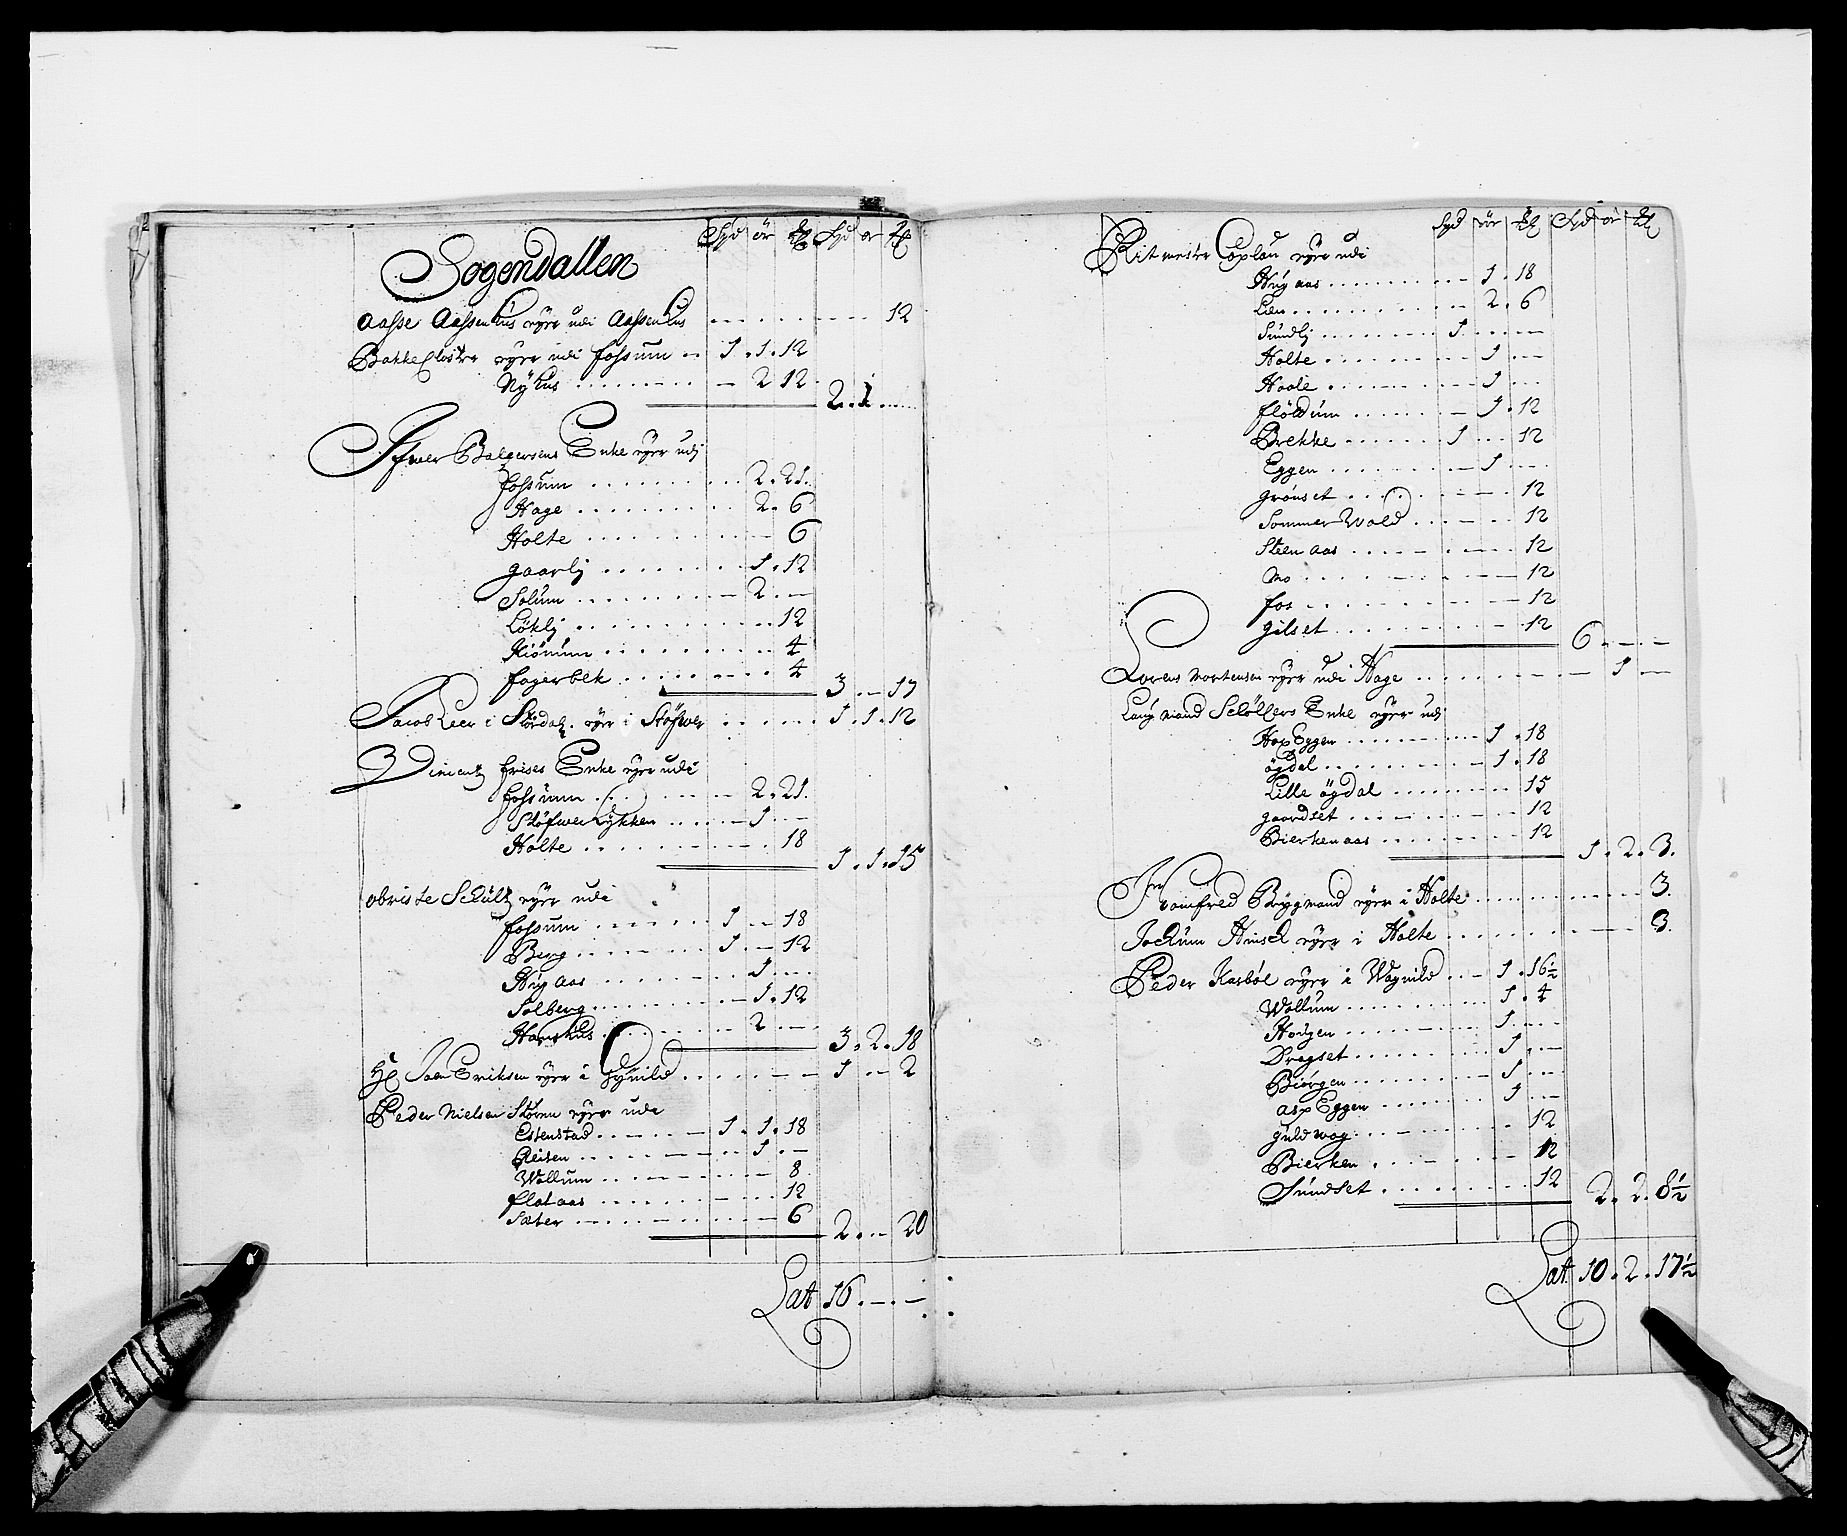 Spd ör ℔ Spd ör ℔
Sogendallen
Aasse Aassenhus eyer udi Aassenhus 12
BakkeCloster eyer udi Fossum 1. 1. 12
Nÿhus 2 12
2. 1.
Ifwer Balzersens Enke eyer udj
Fossum 2. 21.
Hage 2. 6
Holte 6
gaarlj 1. 12
Solum 2.
Löklj 12
Kiönum 4
fagerbek 4
3 17
Jacob Leer i Stördal. eyer i Stöfwer 1. 1. 12
Vincentz frises Enke eyer udi
fossum 2. 21.
Stöfwer Lÿkken 1
Holte 18
1. 1. 15
obriste Schultz eyer udi
fossum 1 18
Berg 1. 12
Hüy aas 1
Solberg 1. 12
Hanshus 2
3. 2. 18
Hr Joen Eriksen eyer i Gynild 1 2
Peder Nielsen Stören eyer udi
Estenstad 1. 1. 18
Reiten 1.
Wollum 8
flataas 12
Sæter 6
2. 20
Lat 16.
Spd ör ℔ Spd ör ℔
Ritmester Coplau eyer udi
Hüy aas 1. 18
Lien 2. 6
Sundlj 1
Holte 1
Haale 1
flöldum 1. 12
Brekke 1 12
Eggen 1
grönset 12
Sommer Wold 12
Steen aas 12
Mo 12
fos 12
gilset 12
6
Lorens Mortensen eyer udi Hage 1
Laugmand Schöllers Enke eyer udj
HaxEggen 1. 18
ögdal 1. 18
Lille ögdal 15
gaardset 12
Bierkenaas 12
1. 2. 3.
Brÿgmand eyer i Holte 3.
Jochum Hinsch eyer i Holte 3.
Peder Karböl eyer i Wagnild 1. 16½
Wollum 1. 4
Hougen 1
Dragset 1.
Biörgen 1
aspEggen 1
guldwog 12
Bierken 12
Sundset 12
2. 2. 8½
Lat 10. 2. 17½